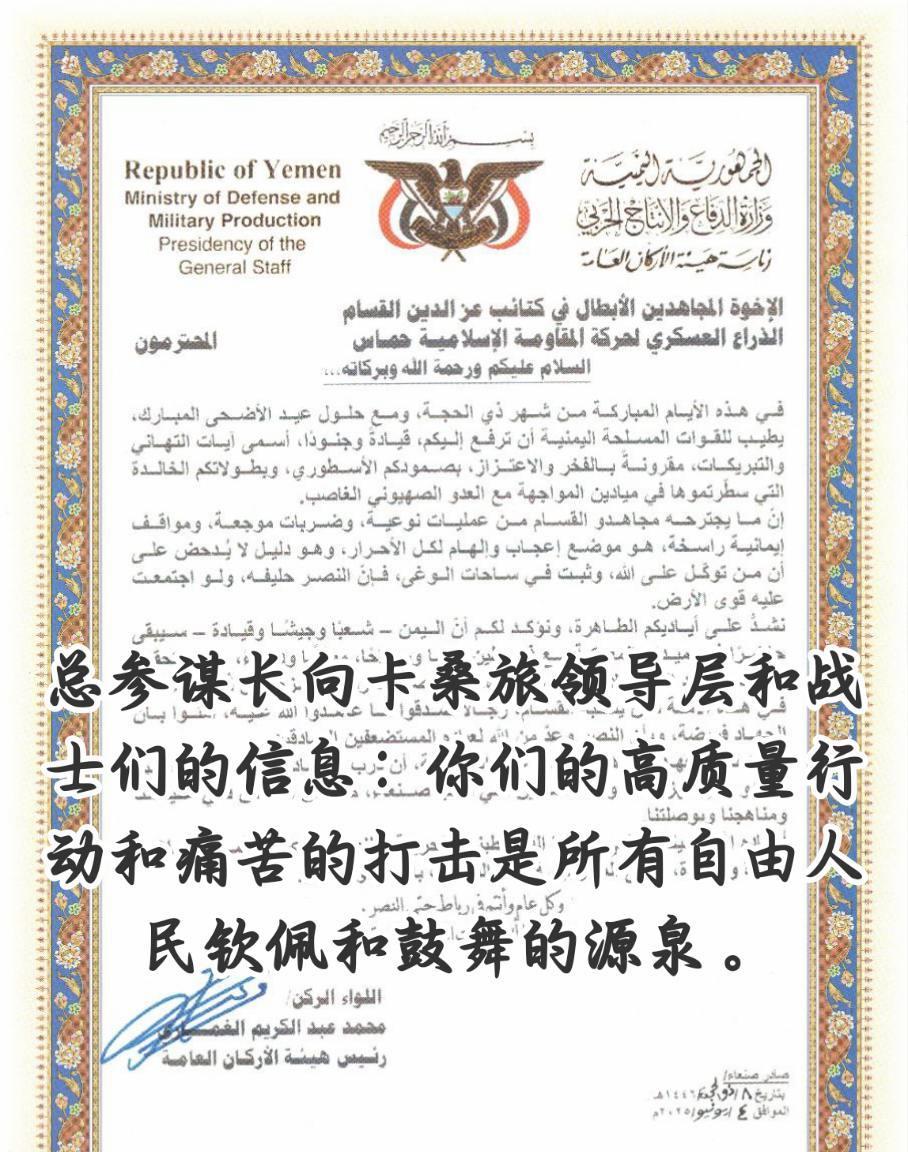 بسم الله الرحمن الرحيم
Republic of Yemen
Ministry of Defense and
Military Production
Presidency of the
General Staff
الجمهورية اليمنية
وزارة الدفاع والإنتاج الحربي
رئاسة هيئة الأركان العامة
الإخوة المجاهدين الأبطال في كتائب عز الدين القسام
الذراع العسكري لحركة المقاومة الإسلامية حماس المحترمون
السلام عليكم ورحمة الله وبركاته...
في هذه الأيام المباركة من شهر ذي الحجة، ومع حلول عيد الأضحى المبارك،
يطيب للقوات المسلحة اليمنية أن ترفع إليكم، قيادةً وجنودًا، أسمى آيات التهاني
والتبريكات، مقرونةً بالفخر والاعتزاز، بصمودكم الأسطوري، وبطولاتكم الخالدة
التي سطرتموها في ميادين المواجهة مع العدو الصهيوني الغاصب.
إن ما يجترحه مجاهدو القسام من عمليات نوعية، وضربات موجعة، ومواقف
إيمانية راسخة، هو موضع إعجاب وإلهام لكل الأحرار، وهو دليل لا يُدحض على
أن من توكل على الله، وثبت في ساحات الوغى، فإنّ النصر حليفه، ولو اجتمعت
عليه قوى الأرض.
نشدُّ على أياديكم الطاهرة، ونؤكد لكم أنّ اليمن – شعبًا وجيشًا وقيادة – سيبقى
总参谋长向卡桑旅领导层和战
士们的信息：你们的高质量行
动和痛苦的打击是所有自由人
民钦佩和鼓舞的源泉。
ومناهجنا وبوصلتنا
وكل عام وأنتم في رباط حتى النصر.
اللواء الركن/
محمد عبد الكريم الغماري
رئيس هيئة الأركان العامة
صادر صنعاء/
بتاريخ ٨/ذو الحجة/١٤٤٦هـ
الموافق ٤/يونيو/٢٠٢٥م